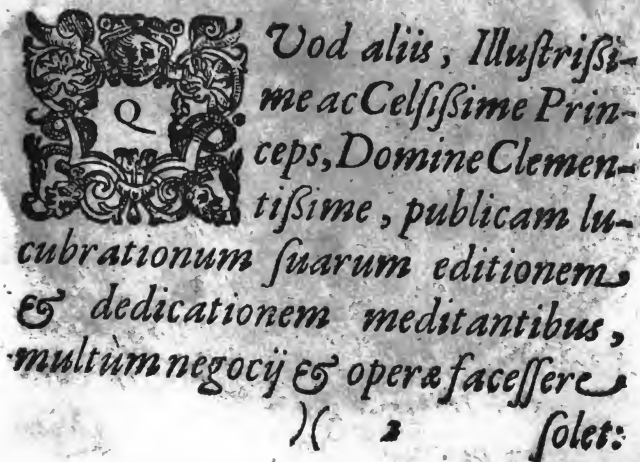 QVod aliis, Illuſtriſſi-
me ac Celſiſſime Prin-
ceps, Domine Clemen-
tiſſime, publicam lu-
cubrationum ſuarum editionem
& dedicationem meditantibus,
multum negocij & operæ faceſſere
)( 2 ſolet: